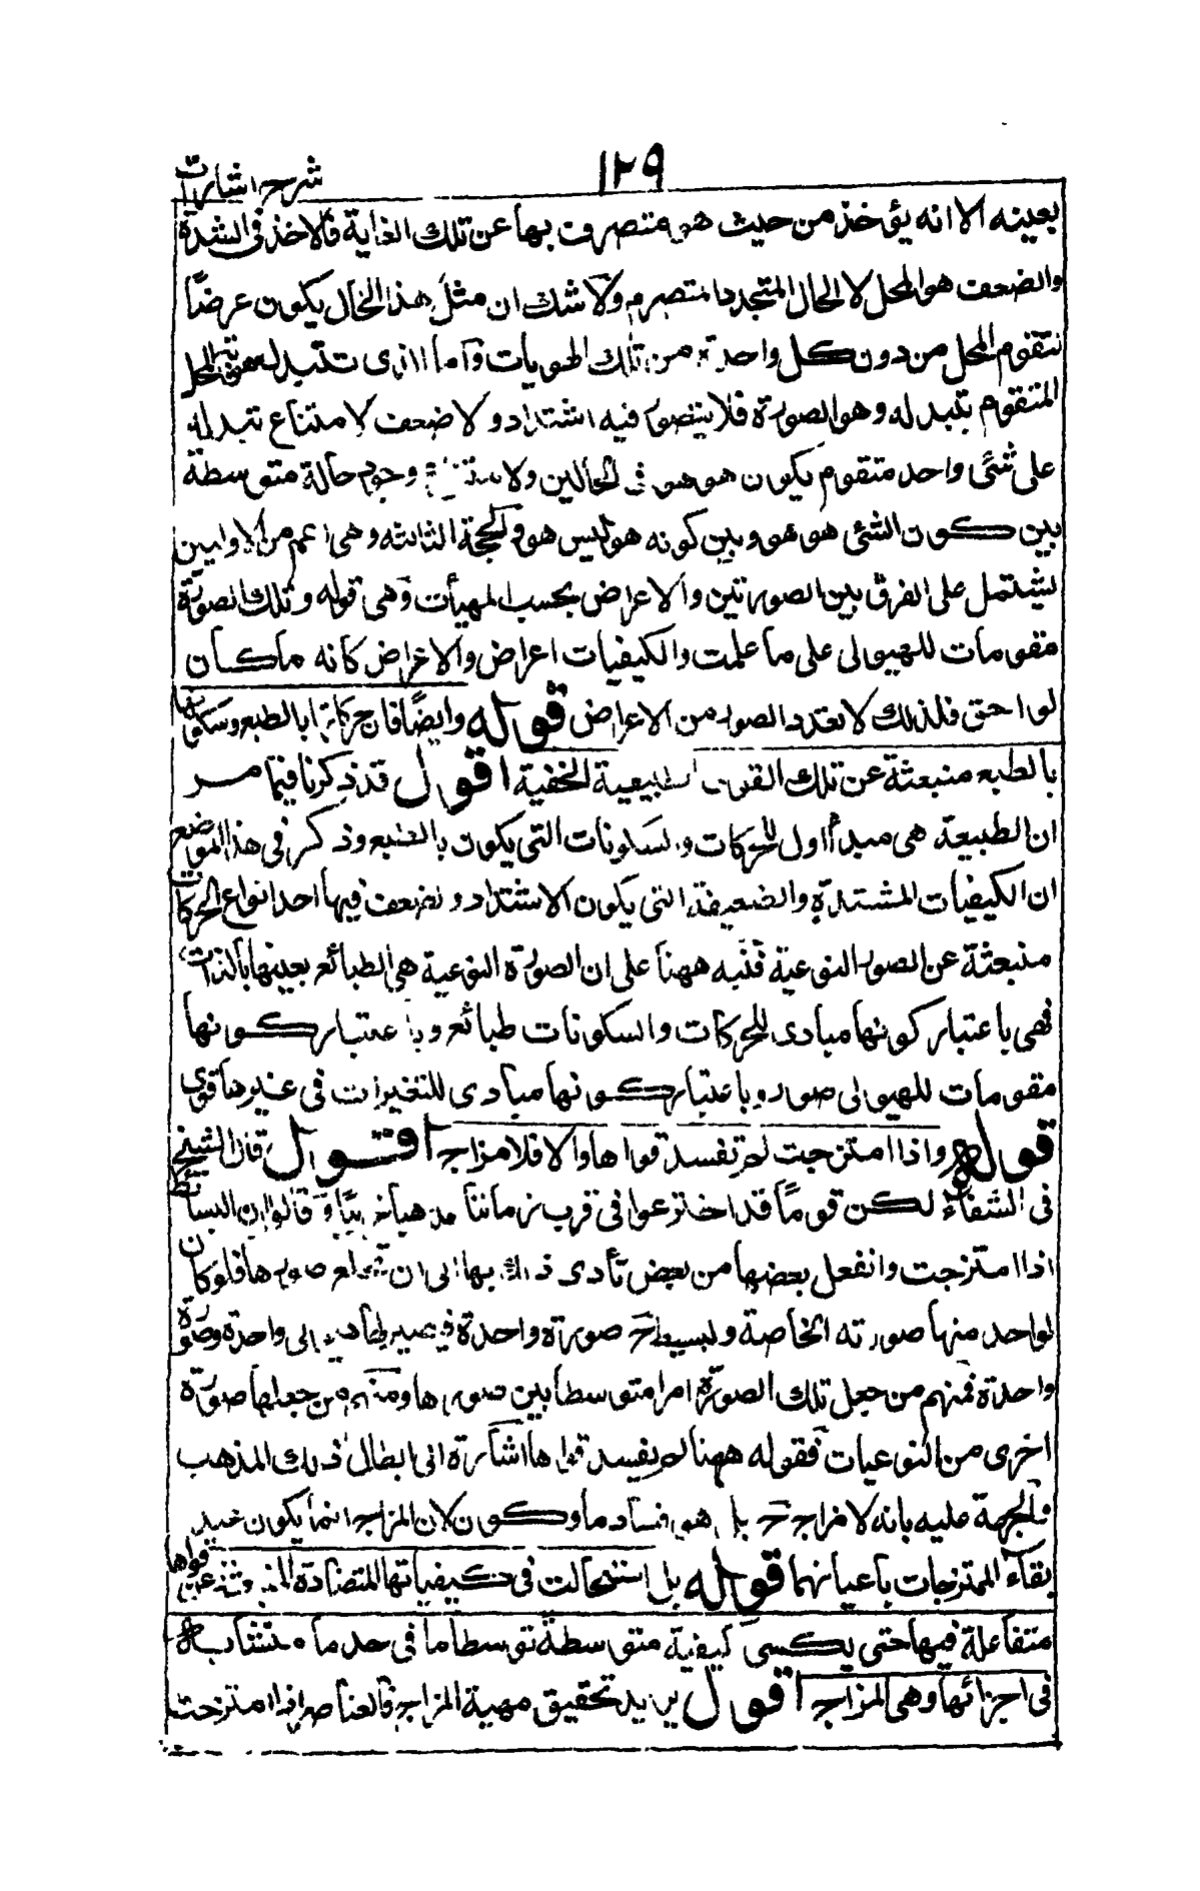 ١٢٩
شرح اشارات
بعينه الا انه يؤخذ من حيث هو متصرف بها عن تلك الغاية فالاخذ فى الشدة
والضعف هو المحل لا الحال المتجدد المتصرم ولا شك ان مثل هذا الحال يكون عرضًا
لتقوم المحل من دون كل واحدة من تلك الهويات واما الذى تتبدل هوية المحل
المتقوم بتبدله وهو الصورة فلا يتصور فيه اشتداد ولا ضعف لامتناع تبدله
على شئ واحد متقوم يكون هو هو فى الحالين ولامتناع وجود حالة متوسطة
بين كون الشئ هو هو وبين كونه هو ليس هو والحجة الثالثة وهى اعم من الاوليين
يشتمل على الفرق بين الصورتين والاعراض بحسب المهيأت وهى قوله وتلك الصورة
مقومات للهيولى على ما علمت والكيفيات اعراض والاعراض كانه ما كان
لواحق فلذلك لا تعدد الصور من الاعراض قوله وايضًا فان حركاتها بالطبع وسكوناتها
بالطبع منبعثة عن تلك القوى الطبيعية الخفية اقول قد ذكرنا فيما مر
ان الطبيعة هى مبدأ اول للحركات والسكونات التى يكون بالطبع وذكر فى هذا الموضع
ان الكيفيات المشتدة والضعيفة التى يكون الاشتداد والضعف فيها احد انواع الحركات
منبعثة عن الصور النوعية فنبه ههنا على ان الصورة النوعية هى الطبائع بعينها بالذات
فهى باعتبار كونها مبادى للحركات والسكونات طبائع وباعتبار كونها
مقومات للهيولى صور وباعتبار كونها مبادى للتغيرات فى غيرها قوى
قوله واذا امتزجت لم تفسد قواها والا فلا مزاج اقول قال الشيخ
فى الشفاء لكن قومًا قد اخترعوا فى قرب زماننا مذهبا غريبًا وقالوا ان البسائط
اذا امتزجت وانفعل بعضها من بعض تأدى ذلك بها الى ان تخلع صورها فلو كان
لواحد منها صورته الخاصة ولبسط ح صورة واحدة فيصير لها هيولى واحدة وصورة
واحدة فمنهم من جعل تلك الصورة امرا متوسطا بين صورها ومنهم من جعلها صورة
اخرى من النوعيات فقوله ههنا لم يفسد قواها اشارة الى ابطال ذلك المذهب
والحجة عليه بانه لا مزاج ح بل هو فساد ما وكون لان المزاج انما يكون عند
بقاء الممتزجات باعيانها قوله بل استحالت فى كيفياتها المتضادة المنبعثة عن قواها
متفاعلة فيها حتى يكسى كيفية متوسطة توسطا ما فى حد ما متشابه
فى اجزائها وهى المزاج اقول يريد تحقيق مهية المزاج فالعناصر اذا امتزجت